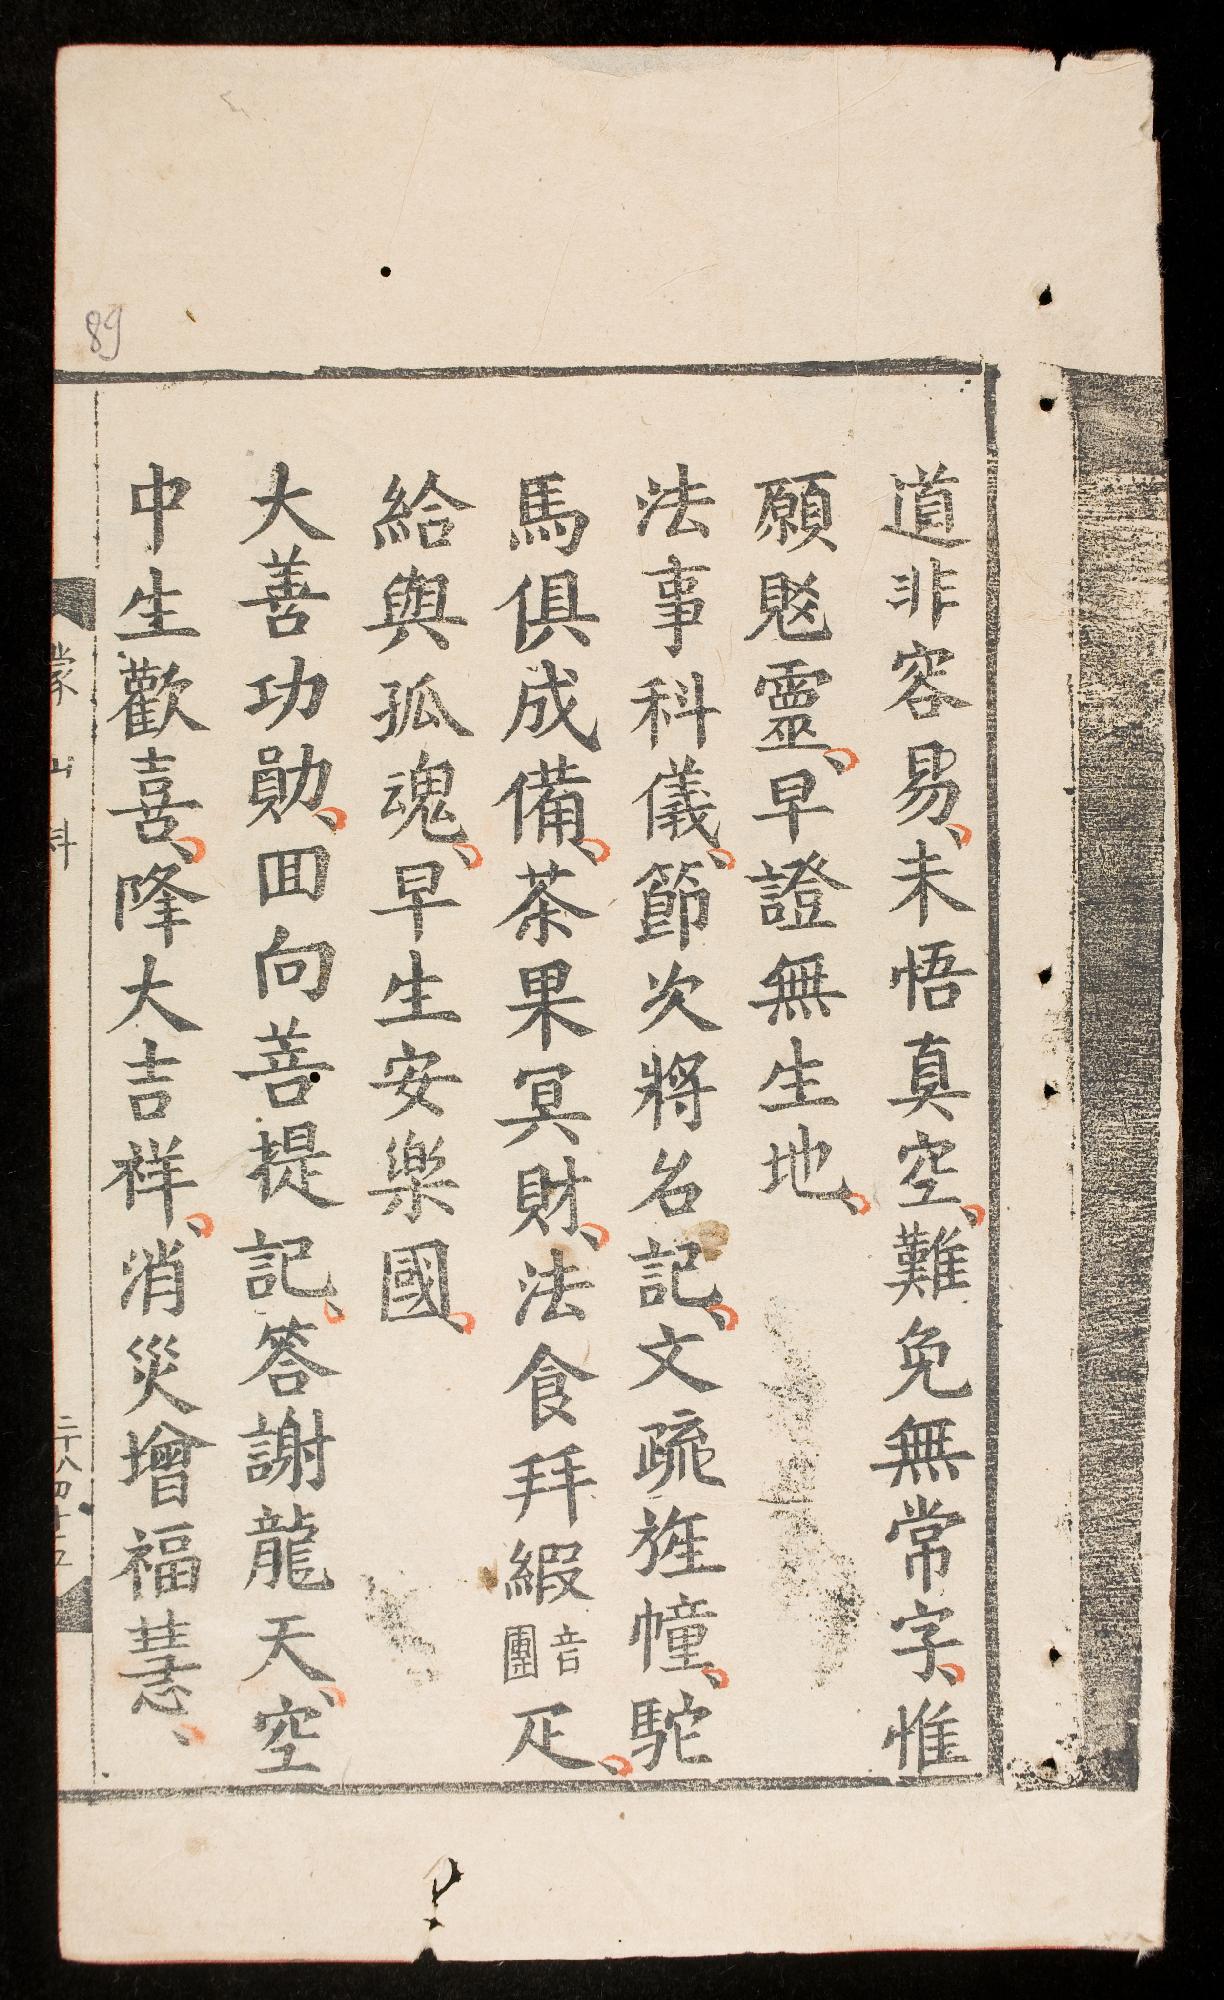 道非容易、未悟真空、難免無常字、惟
願䰟靈、早證無生地、
法事科儀、節次將名記、文疏旌幢、駝
馬俱成備、茶果冥財、法食拜緞音團疋、
給與孤魂、早生安樂國、
大善功勛、回向菩提記、答謝龍天、空
中生歡喜、降大吉祥、消災增福慧、
蒙山科
二十八 四十五
89